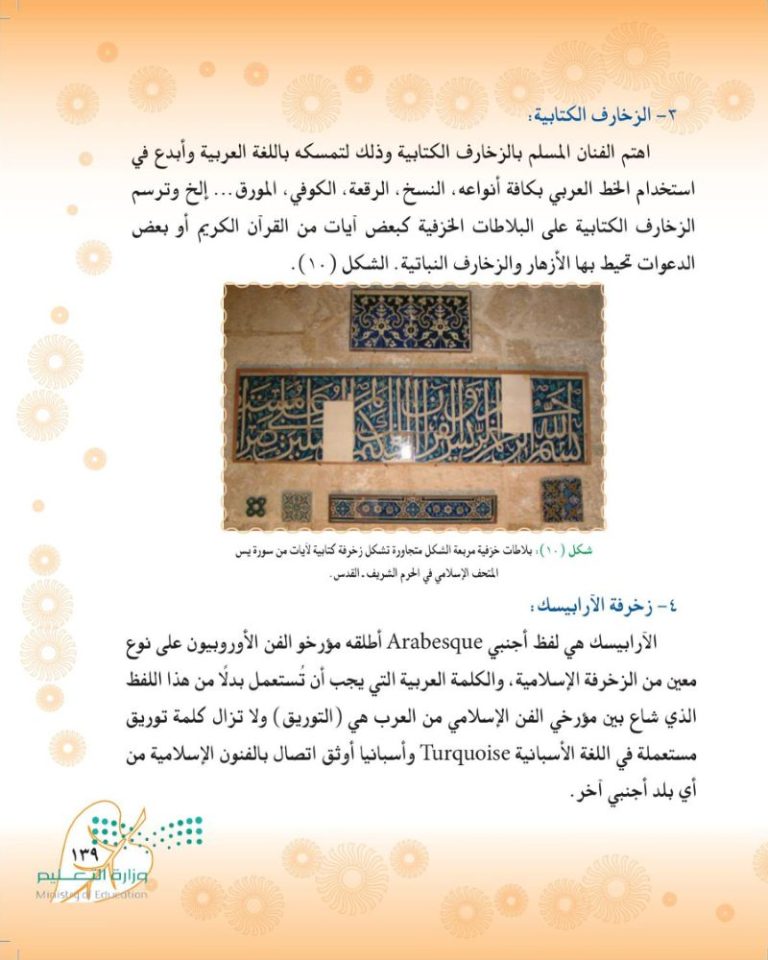 ٣- الزخارف الكتابية:
اهتم الفنان المسلم بالزخارف الكتابية وذلك لتمسكه باللغة العربية وأبدع في
استخدام الخط العربي بكافة أنواعه، النسخ، الرقعة، الكوفي، المورق... إلخ وترسم
الزخارف الكتابية على البلاطات الخزفية كبعض آيات من القرآن الكريم أو بعض
الدعوات تحيط بها الأزهار والزخارف النباتية. الشكل (١٠).
شكل (١٠): بلاطات خزفية مربعة الشكل متجاورة تشكل زخرفة كتابية لآيات من سورة يس
المتحف الإسلامي في الحرم الشريف ـ القدس.
٤- زخرفة الآرابيسك:
الآرابيسك هي لفظ أجنبي Arabesque أطلقه مؤرخو الفن الأوروبيون على نوع
معين من الزخرفة الإسلامية، والكلمة العربية التي يجب أن تُستعمل بدلًا من هذا اللفظ
الذي شاع بين مؤرخي الفن الإسلامي من العرب هي (التوريق) ولا تزال كلمة توريق
مستعملة في اللغة الأسبانية Turquoise وأسبانيا أوثق اتصال بالفنون الإسلامية من
أي بلد أجنبي آخر.
١٣٩
وزارة التعليم
Ministry of Education